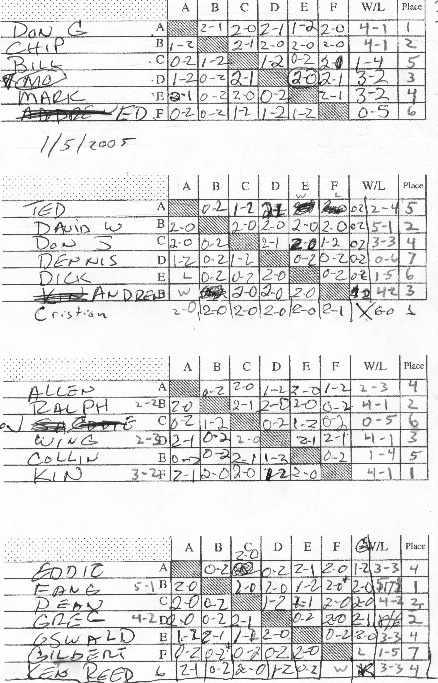 A B C D E F W/L Place
DON G A 2-1 2-0 2-1 1-2 2-0 4-1 1
CHIP B 1-2 2-1 2-0 2-0 4-1 2
BILL C 0-2 1-2 1-2 0-2 1-4 5
MO D 1-2 0-2 2-1 2-0 2-1 3-2 3
MARK E 2-1 0-2 2-0 0-2 2-1 3-2 4
ED F 0-2 0-2 1-2 1-2 1-2 0-5 6
1/5/2005
A B C D E F W/L Place
TED A 0-2 1-2 2-1 0-2 2-4 5
DAVID W B 2-0 2-0 2-0 2-0 2-0 0-2 5-1 2
DON J C 2-0 0-2 2-1 2-0 1-2 0-2 3-3 4
DENNIS D 1-2 0-2 1-2 0-2 0-2 0-2 0-6 7
DICK E L 0-2 0-2 2-0 0-2 0-2 1-5 6
ANDREW W 2-0 2-0 2-0 4-2 3
Cristian 2-0 2-0 2-0 2-0 2-0 2-1 6-0 1
A B C D E F W/L Place
ALLEN A 0-2 2-0 1-2 2-0 1-2 2-3 4
RALPH B 2-0 2-1 2-0 2-0 0-2 4-1 2
C 0-2 1-2 0-2 1-2 0-2 0-5 6
WING D 2-1 0-2 2-0 2-1 2-1 4-1 3
COLLIN E 0-2 0-2 2-1 1-2 0-2 1-4 5
KIN 3-2 F 2-1 2-0 2-0 1-2 2-0 4-1 1
A B C D E F W/L Place
EDDIE A 0-2 0-2 2-1 2-0 1-2 3-3 4
FANG 5-1 B 2-0 2-0 2-0 1-2 2-0 1
DEAN C 2-0 0-2 1-2 2-1 2-0 2-0 4-2 2
GREG 4-2 D 2-0 0-2 2-1 0-2 2-0 2-1 2
OSWALD E 1-2 2-1 1-2 2-0 0-2 2-0 3-3 4
GILBERT F 0-2 0-2 0-2 0-2 2-0 L 1-5 7
KEN REED 6 2-1 0-2 2-0 1-2 0-2 W 3-3 4